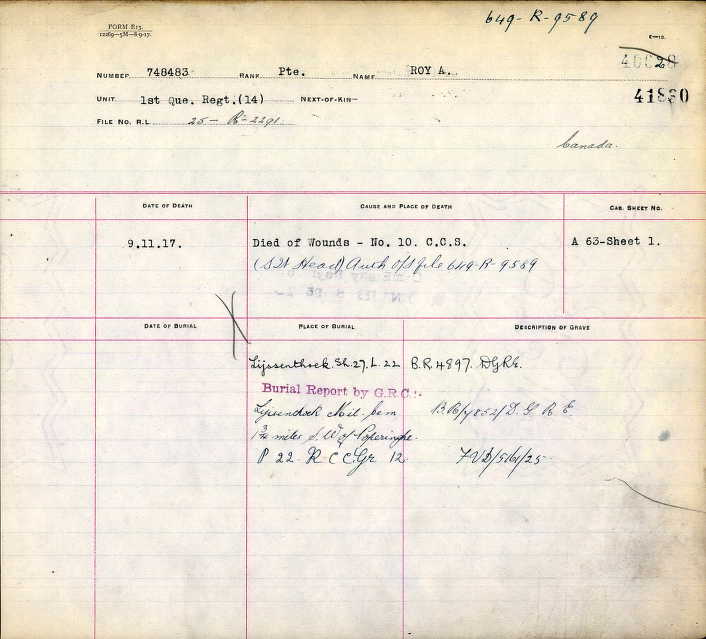 649-R-9589
FORM E13.
12269—5M—8-9-17.
E—12.
NUMBER 748483 RANK Pte. NAME ROY A.
UNIT 1st Que. Regt.(14) NEXT-OF-KIN—
41830
FILE NO. R.L. 25-R-2291
Canada.
DATE OF DEATH CAUSE AND PLACE OF DEATH CAS. SHEET NO.
9.11.17. Died of Wounds - No. 10. C.C.S. A 63-Sheet 1.
(S.W. Head) Auth O/S file 649-R-9589
DATE OF BURIAL PLACE OF BURIAL DESCRIPTION OF GRAVE
Lijssenthoek. Sh. 27. L. 22 B.R. 4897. DGRE.
Burial Report by G.R.C.:-
Lijssenthoek Mil. Cem D.G.R.E
miles S.W of Poperinghe.
P 22 R C C Gr 12